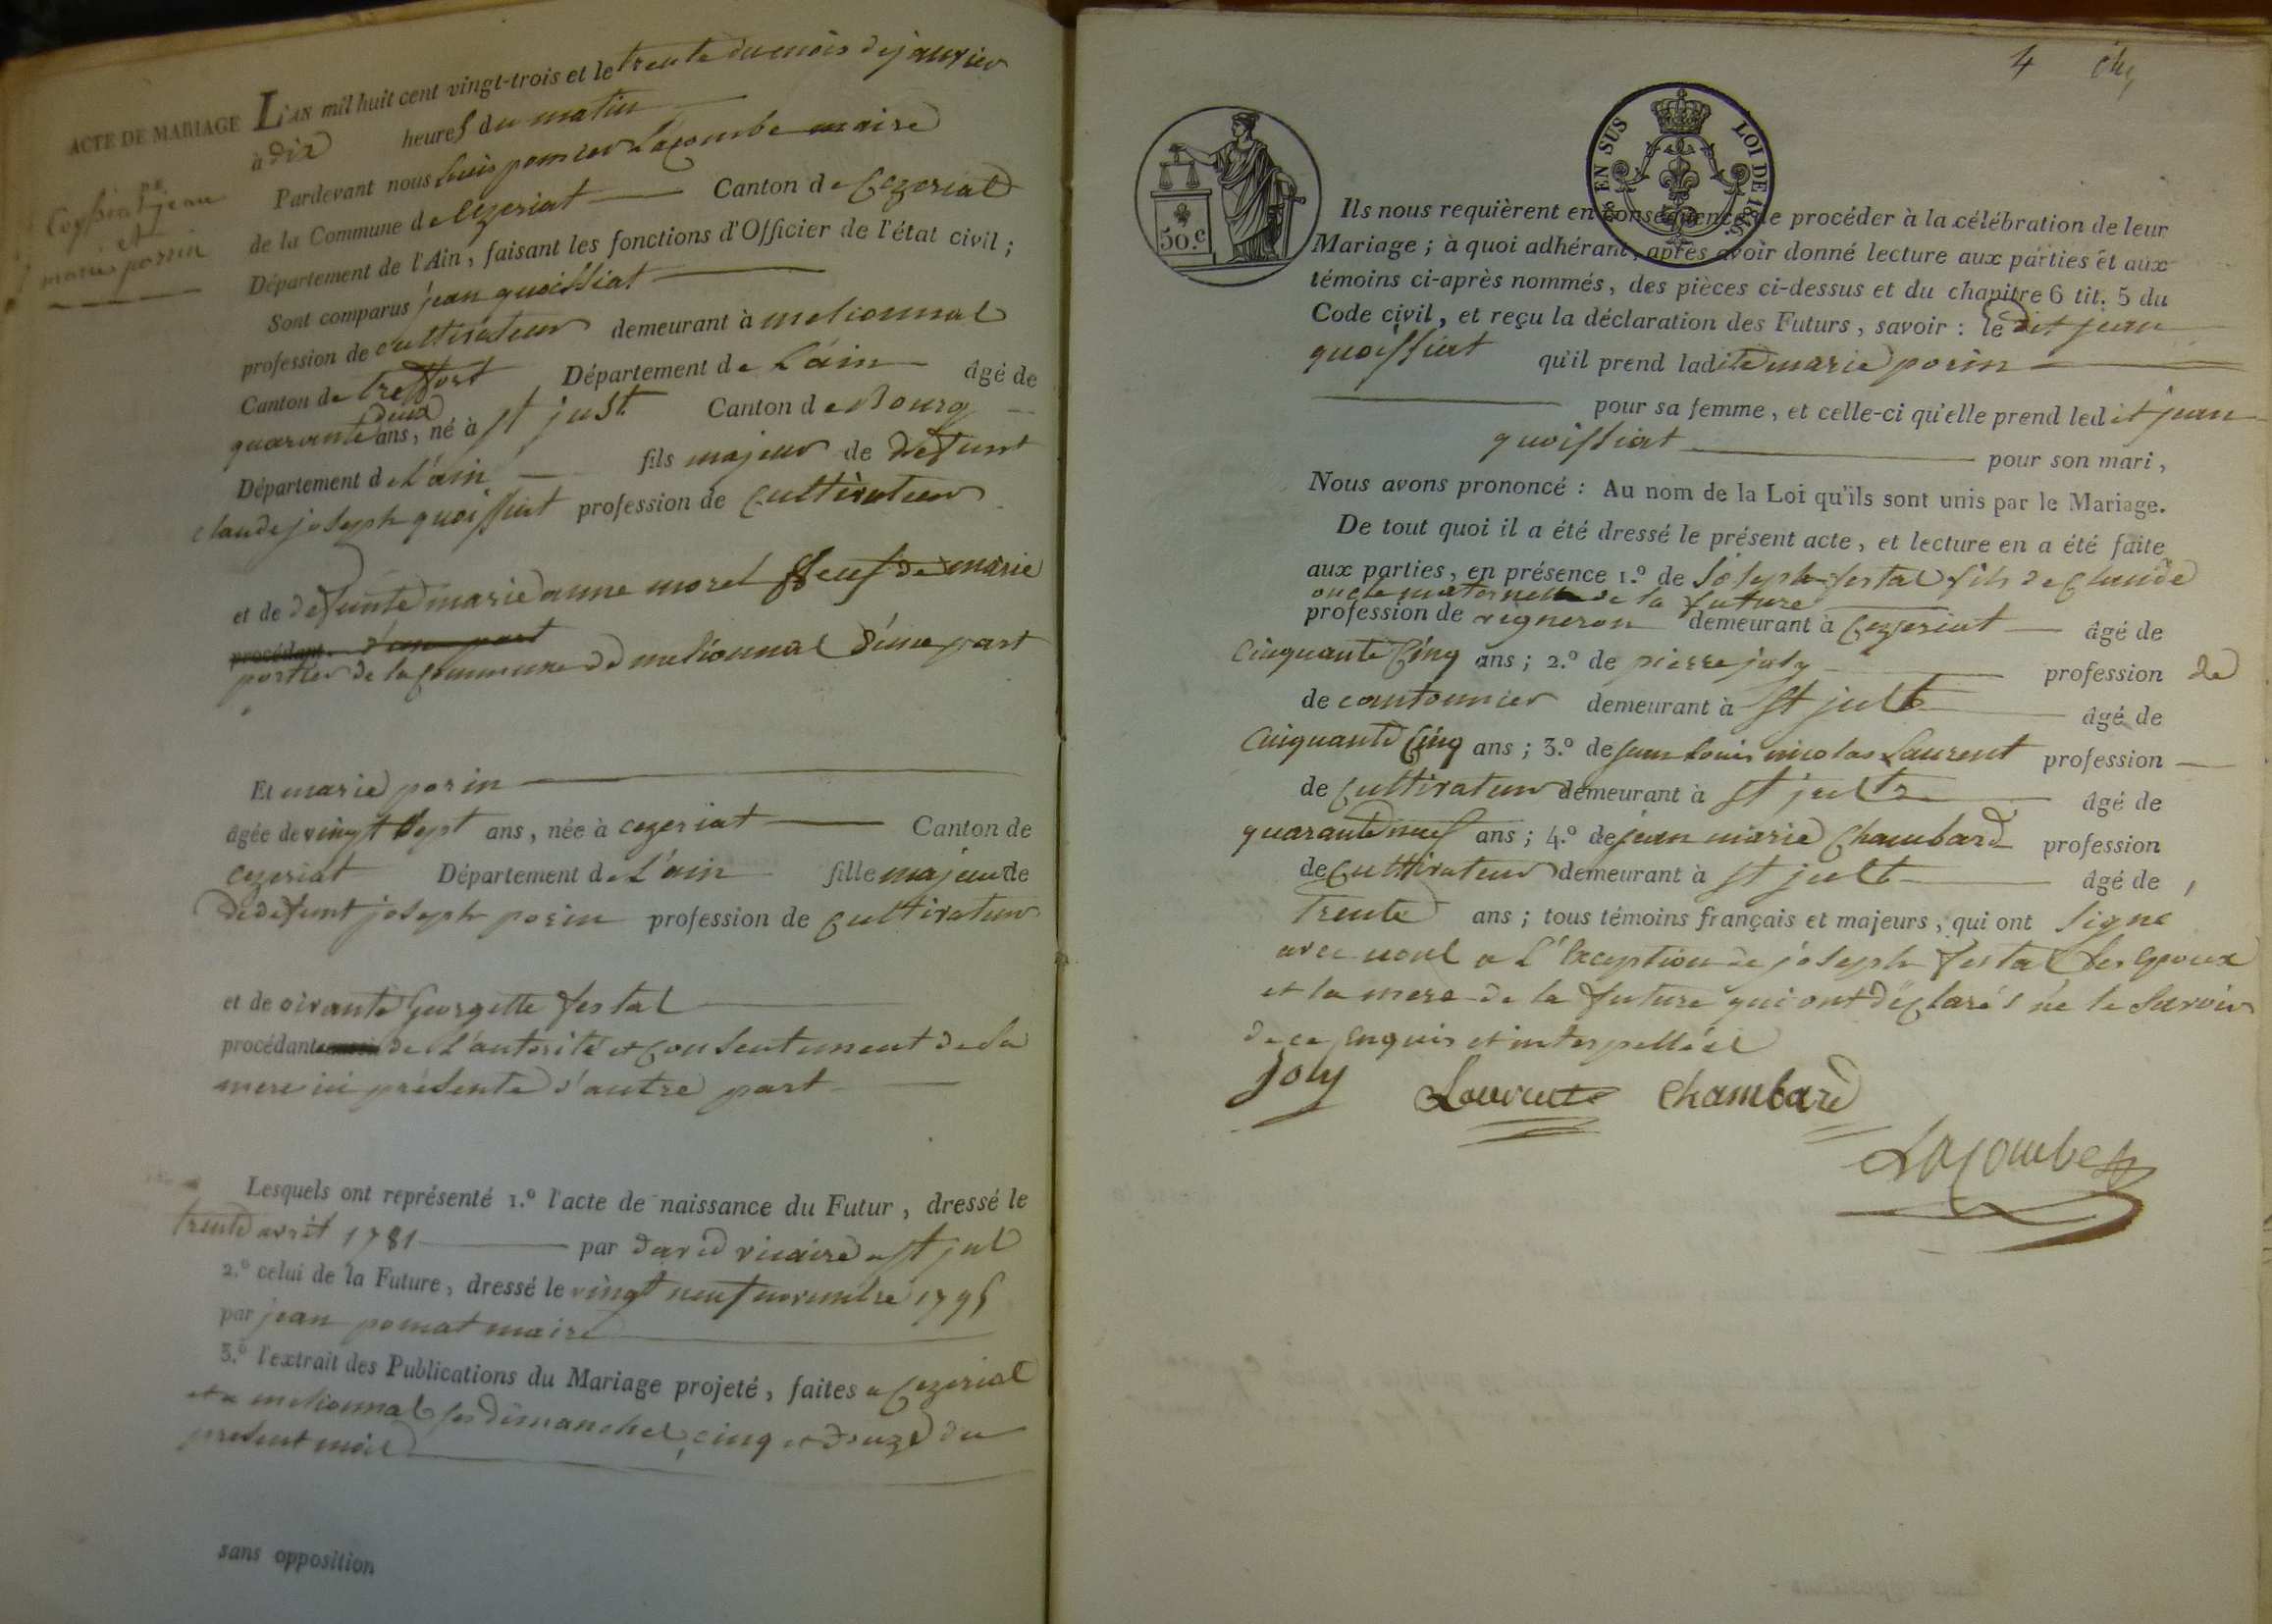 ACTE DE MARIAGE
Coissiat jean
et
marie porrin
L'AN mil huit cent vingt-trois et le trente du mois de janvier
à dix heures du matin
Pardevant nous Louis pomier Lacombe maire
de la Commune de Cezeriat Canton de Cezeriat
Département de l'Ain, faisant les fonctions d'Officier de l'état civil ;
Sont comparus jean quoissiat
profession de cultivateur demeurant à melionnat
Canton de treffort Département de L'ain âgé de
quarante deux ans, né à st just Canton de Bourg
Département de L'ain fils majeur de defunt
claude joseph quoissiat profession de cultivateur
et de defunte marie anne morel veuf de marie
procédant d'une part
portier de la commune de melionnat d'une part
Et marie porin
âgée de vingt sept ans, née à cezeriat Canton de
cezeriat Département de L'ain fille majeure de
de defunt joseph porin profession de cultivateur
et de vivante Georgette festal
procédante de L'autorité et consentement de sa
mere ici présente d'autre part
Lesquels ont représenté 1.º l'acte de naissance du Futur, dressé le
trente avril 1781 par david vicaire a st jul
2.º celui de la Future, dressé le vingt neuf novembre 1795
par jean pomat maire
3.º l'extrait des Publications du Mariage projeté, faites a Cezeriat
et a melionnat les dimanches cinq et douze du
present mois
sans opposition
4
50.c
EN SUS LOI DE 1816.
Ils nous requièrent en conséquence de procéder à la célébration de leur
Mariage ; à quoi adhérant, après avoir donné lecture aux parties et aux
témoins ci-après nommés, des pièces ci-dessus et du chapitre 6 tit. 5 du
Code civil, et reçu la déclaration des Futurs, savoir : le dit jean
quoissiat qu'il prend ladite marie porin
pour sa femme, et celle-ci qu'elle prend ledit jean
quoissiat pour son mari,
Nous avons prononcé : Au nom de la Loi qu'ils sont unis par le Mariage.
De tout quoi il a été dressé le présent acte, et lecture en a été faite
aux parties, en présence 1.º de Joseph festal fils de Claude
oncle maternel de la future
profession de vigneron demeurant à Cezeriat âgé de
Cinquante Cinq ans ; 2.º de pierre joly profession de
de cantonnier demeurant à st just âgé de
Cinquante Cinq ans ; 3.º de jean Louis nicolas Laurent profession
de cultivateur demeurant à st just âgé de
quarante neuf ans ; 4.º de jean marie Chambard profession
de cultivateur demeurant à st just âgé de
trente ans ; tous témoins français et majeurs, qui ont signe
avec nous a L'Exception de joseph festal les Epoux
et la mere de la future qui ont déclarés ne le savoir
de ce Enquis et interpellés
Joly Laurent Chambard
Lacombe